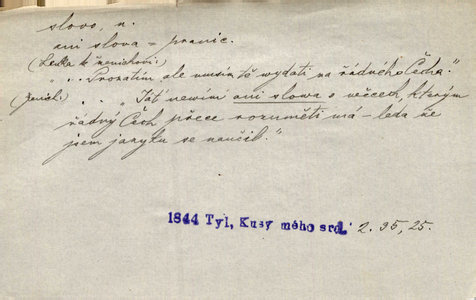 slovo, n.
ani slova = pranic.
(Lenka k ženichovi:)
" .. Prozatím ale musím tě wydati na řádného Čecha."
(ženich:) . . „Tať newím ani slowa o wěcech, kterým
řádný Čech přece rozuměti má – leda že
jsem jazyku se naučil."
1844 Tyl, Kusy mého srd. 2. 35, 25.